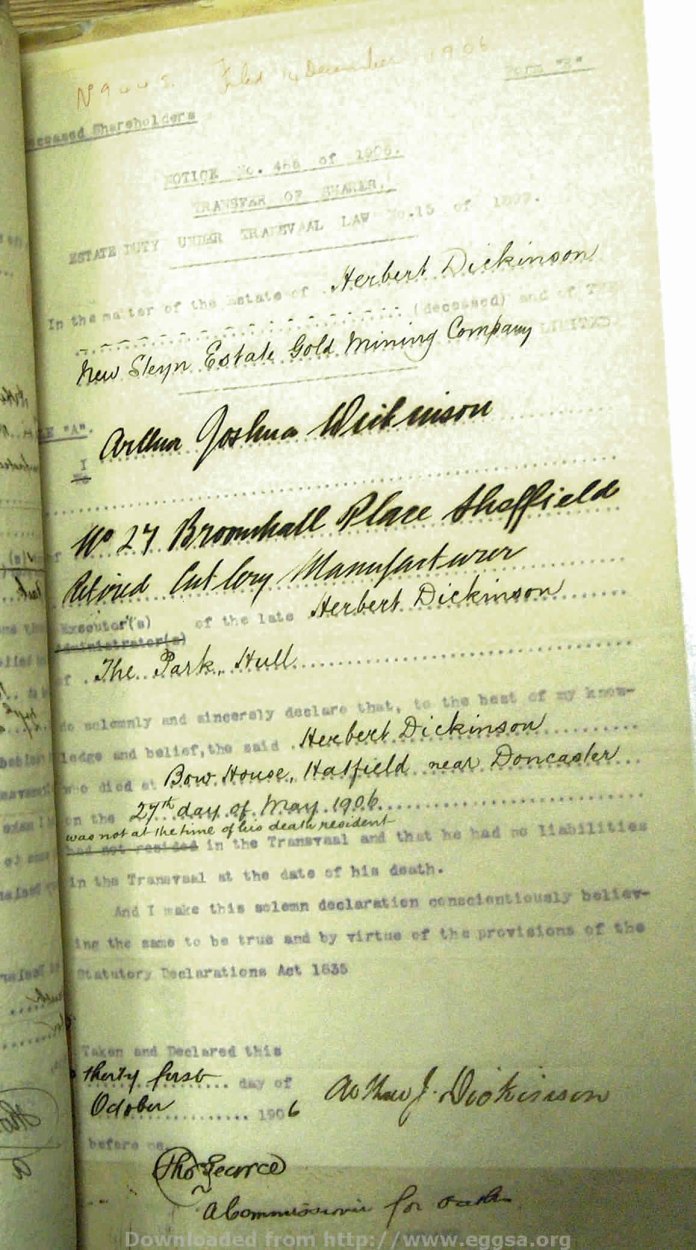 Nº 9445 Filed 4 December 1906
Form "B"
Deceased Shareholders
NOTICE No. 466 of 1906.
TRANSFER OF SHARES.
ESTATE DUTY UNDER TRANSVAAL LAW No.15 of 1877.
In the matter of the Estate of Herbert Dickinson
(deceased) and of THE
New Steyn Estate Gold Mining Company LIMITED
"A".
I Arthur Joshua Dickinson
of No 27 Broomhall Place Sheffield
Retired Cutlery Manufacturer
Executor(s) of the late Herbert Dickinson
Administrator(s)
of The Park, Hull
do solemnly and sincerely declare that, to the best of my know-
ledge and belief, the said Herbert Dickinson
who died at Bow House, Hatfield near Doncaster
on the 27th day of May 1906
was not at the time of his death resident
had not resided in the Transvaal and that he had no liabilities
in the Transvaal at the date of his death.
And I make this solemn declaration conscientiously believ-
ing the same to be true and by virtue of the provisions of the
Statutory Declarations Act 1835
Taken and Declared this
thirty first day of
October 1906
Arthur J. Dickinson
before me,
Thos Pearce
A Commissioner for oaths
Downloaded from http://www.eggsa.org